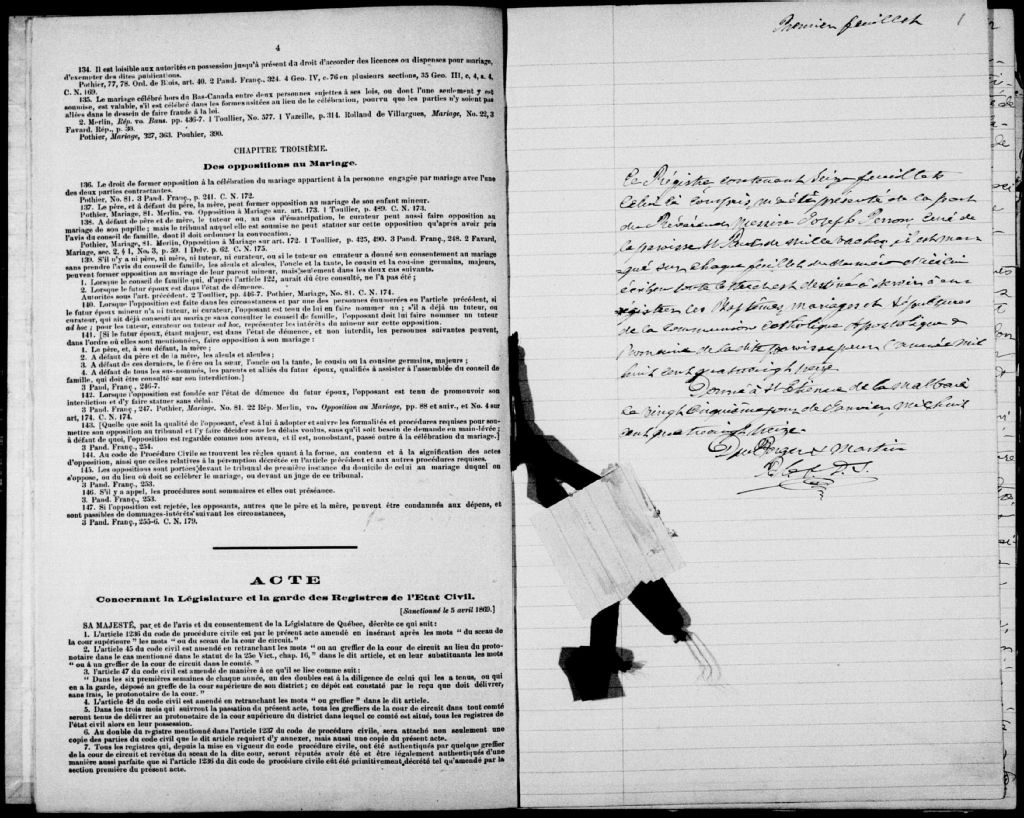 4
134. Il est loisible aux autorités en possession jusqu'à présent du droit d'accorder les licences ou dispenses pour mariage,
d'exempter des dites publications.
Pothier, 77, 78. Ord. de Blois, art. 40. 2 Pand. Franç., 324. 4 Geo. IV, c. 76 en plusieurs sections, 35 Geo. III, c, 4, s. 4,
C. N. 169.
135. Le mariage célébré hors du Bas-Canada entre deux personnes sujettes à ses lois, ou dont l'une seulement y est
soumise, est valable, s'il est célébré dans les formes usitées au lieu de la célébration, pourvu que les parties n'y soient pas
allées dans le dessein de faire fraude à la loi.
2. Merlin, Rép. vo. Bans. pp. 436-7. 1 Toullier, No. 577. 1 Vazeille, p. 314. Rolland de Villargues, Mariage, No. 22, 3
Favard. Rép., p. 30.
Pothier, Mariage, 327, 363. Pouhier, 390.
CHAPITRE TROISIÈME.
Des oppositions au Mariage.
136. Le droit de former opposition à la célébration du mariage appartient à la personne engagée par mariage avec l'une
des deux parties contractantes.
Pothier, No. 81. 3 Pand. Franç., p. 241. C. N. 172.
137. Le père, et à défaut du père, la mère, peut former opposition au mariage de son enfant mineur.
Pothier, Mariage, 81. Merlin. vo. Opposition à Mariage sur. art. 173. 1 Toullier, p. 489. C. N. 173.
138. A défaut de père et de mère, le tuteur ou, au cas d'émancipation, le curateur peut aussi faire opposition au
mariage de son pupille; mais le tribunal auquel elle est soumise ne peut statuer sur cette opposition qu'après avoir pris
l'avis du conseil de famille, dont il doit ordonner la convocation.
Pothier, Mariage, 81. Merlin, Opposition à Mariage sur art. 172. 1 Toullier, p. 425, 490. 3 Pand. Franç., 248. 2 Favard,
Mariage, sec. 2, § 1, No. 3, p. 59. 1 Delv. p. 62. C. N. 175.
139. S'il n'y a ni père, ni mère, ni tuteur, ni curateur, ou si le tuteur ou curateur a donné son consentement au mariage
sans prendre l'avis du conseil de famille, les aïeuls et aïeules, l'oncle et la tante, le cousin et la cousine germains, majeurs,
peuvent former opposition au mariage de leur parent mineur, mais seulement dans les deux cas suivants.
1. Lorsque le conseil de famille qui, d'après l'article 122, aurait dû être consulté, ne l'a pas été;
2. Lorsque le futur époux est dans l'état de démence.
Autorités sous l'art. précédent. 2 Toullier, pp. 446-7. Pothier, Mariage, No. 81. C. N. 174.
140. Lorsque l'opposition est faite dans les circonstances et par une des personnes énumérées en l'article précédent, si
le futur époux mineur n'a ni tuteur, ni curateur, l'opposant est tenu de lui en faire nommer un; s'il a déjà un tuteur, ou
curateur, qui ait déjà consenti au mariage sans consulter le conseil de famille, l'opposant doit lui faire nommer un tuteur
ad hoc; pour les tuteur, curateur ou tuteur ad hoc, représenter les intérêts du mineur sur cette opposition.
141. [Si le futur époux, étant majeur, est dans l'état de démence, et non interdit, les personnes suivantes peuvent,
dans l'ordre où elles sont mentionnées, faire opposition à son mariage:
1. Le père, et, à son défaut, la mère;
2. A défaut du père et de la mère, les aïeuls et aïeules;
3. A défaut de ces derniers, le frère ou la sœur, l'oncle ou la tante, le cousin ou la cousine germains, majeurs;
4. A défaut de tous les sus-nommés, les parents et alliés du futur époux, qualifiés à assister à l'assemblée du conseil de
famille, qui doit être consulté sur son interdiction.]
3 Pand. Franç., 246-7.
142. Lorsque l'opposition est fondée sur l'état de démence du futur époux, l'opposant est tenu de promouvoir son
interdiction et d'y faire statuer sans délai.
3 Pand. Franç., 247. Pothier, Mariage, No. 81. 22 Rép. Merlin, vo. Opposition au Mariage, pp. 88 et suiv., et No. 4 sur
art, 174. C. N. 174.
143. [Quelle que soit la qualité de l'opposant, c'est à lui à adopter et suivre les formalités et procédures requises pour soumettre son opposition au tribunal et l'y faire décider sous les délais voulus, sans qu'il soit besoin de demande en main-lévée;
à défaut de quoi, l'opposition est regardée comme non avenue, et il est, nonobstant, passé outre à la célébration du mariage.]
3 Pand. Franç., 254.
144. Au code de Procédure Civile se trouvent les règles quant à la forme, au contenu et à la signification des actes
d'opposition, ainsi que celles relatives à la péremption décrétée en l'article précédent et aux autres procédures requises.
145. Les oppositions sont portées devant le tribunal de première instance du domicile de celui au mariage duquel on
s'oppose, ou du lieu où doit se célébrer le mariage, ou devant un juge de ce tribunal.
3 Pand. Franç., 253.
146. S'il y a appel, les procédures sont sommaires et elles ont préséance.
3. Pand. Franç., 253.
147. Si l'opposition est rejetée, les opposants, autres que le père et la mère, peuvent être condamnés aux dépens, et
sont passibles de dommages-intérêts suivant les circonstances,
3 Pand. Franç., 255-6. C. N. 179.
ACTE
Concernant la Législature et la garde des Registres de l'Etat Civil.
[Sanctionné le 5 avril 1869.]
SA MAJESTÉ, par et de l'avis et du consentement de la Législature de Québec, décrète ce qui suit:
1. L'article 1236 du code de procédure civile est par le présent acte amendé en insérant après les mots "du sceau de
la cour supérieure" les mots "ou du sceau de la cour de circuit."
2. L'article 45 du code civil est amendé en retranchant les mots "ou au greffier de la cour de circuit au lieu du protonotaire dans le cas mentionné dans le statut de la 25e Vict., chap. 16," dans le dit article, et en leur substituant les mots
"ou à un greffier de la cour de circuit dans le comté."
3. l'article 47 du code civil est amendé de manière à ce qu'il se lise comme suit:
"Dans les six premières semaines de chaque année, un des doubles est à la diligence de celui qui les a tenus, ou qui
en a la garde, déposé au greffe de la cour supérieure de son district; ce dépôt est constaté par le reçu que doit délivrer,
sans frais, le protonotaire de la cour."
4. L'article 48 du code civil est amendé en retranchant les mots "ou greffier" dans le dit article.
5. Dans les trois mois qui suivront la passation du présent acte, tous les greffiers de la cour de circuit dans tout comté
seront tenus de délivrer au protonotaire de la cour supérieure du district dans lequel ce comté est situé, tous les registres de
l'état civil alors en leur possession.
6. Au double du registre mentionné dans l'article 1237 du code de procédure civile, sera attaché non seulement une
copie des parties du code civil que le dit article requiert d'y annexer, mais aussi une copie du présent acte.
7. Tous les registres qui, depuis la mise en vigueur du code procédure civile, ont été authentiqués par quelque greffier
de la cour de circuit et revêtus du sceau de la dite cour, seront réputés avoir été et être légalement authentiqués d'une
manière aussi parfaite que si l'article 1236 du dit code de procédure civile eût été primitivement décrété tel qu'amendé par la
section première du présent acte.
Premier feuillet 1
Ce Régistre contenant Seize feuillets
celui-ci compris, m'a été présenté de la part
du Révérend Messire Joseph Perron, curé de
la paroisse St Paul de Mille Vaches, il est mar
qué sur chaque feuillet du
et est destiné à servir à en
régistrer les Baptêmes, mariages et Sépultures
de la Communion Catholique Apostolique &
Romaine de la dite paroisse pour l'année mil
huit cent quatre vingt seize.
Donné à St Etienne de la Malbaie
ce vingt cinquième jour de Janvier mil huit
cent quatre vingt Seize.
& Martin